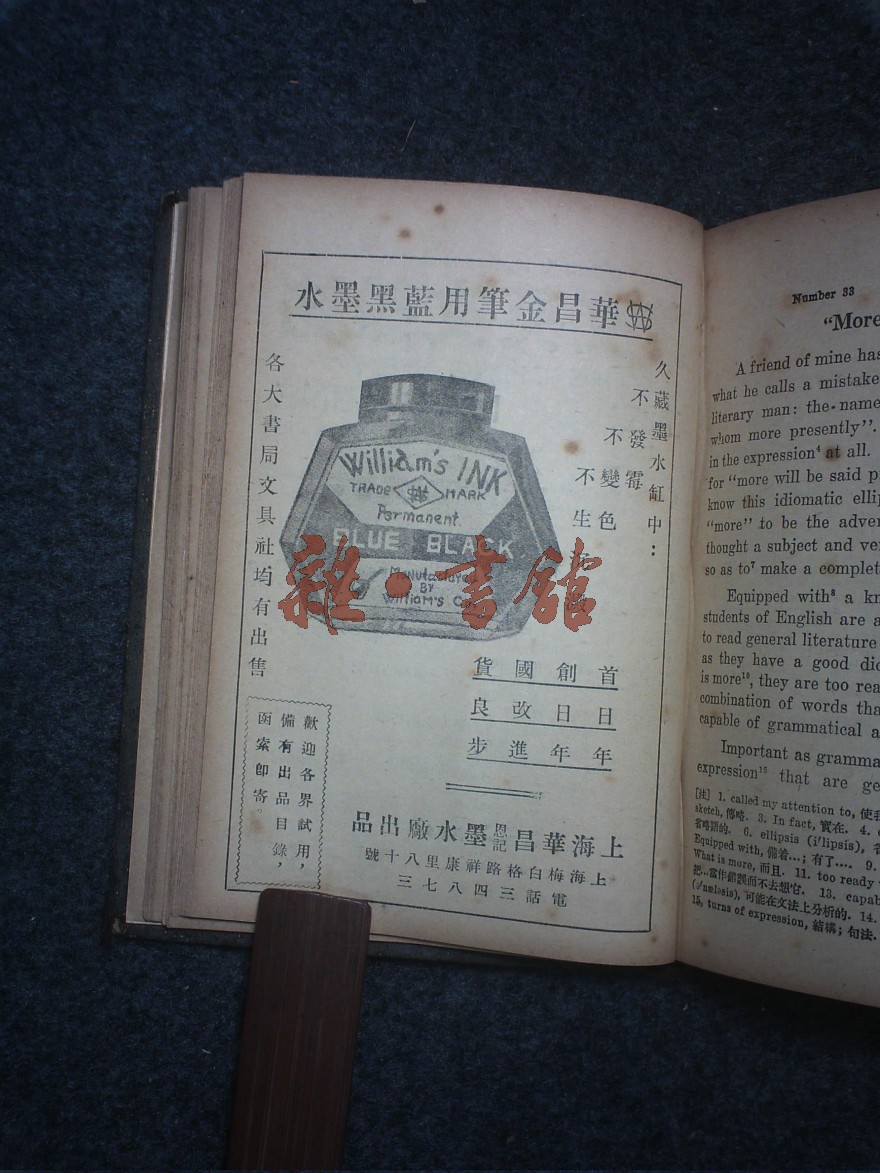 華昌金筆用藍黑墨水
久藏墨水缸中：
不發霉
不變色
不生
William's INK
TRADE MARK
Permanent
BLUE BLACK
Manufactured
BY
William's Co.
雜·書館
各大書局文具社均有出售
首創國貨
日日改良
年年進步
歡迎各界試用，
備有出品目錄，
函索即寄。
上海華昌恩記墨水廠出品
上海梅白格路祥康里八十號
電話三四八七三
Number 33
“More
A friend of mine has
what he calls a mistake
literary man: the name
whom more presently”.
in the expression⁴ at all.
for “more will be said p
know this idiomatic elli
“more” to be the adver
thought a subject and ve
so as to⁷ make a complet
Equipped with⁸ a kn
students of English are a
to read general literature
as they have a good dic
is more¹⁰, they are too rea
combination of words tha
capable of grammatical a
Important as gramma
expression¹⁵ that are ge
[注] 1. called my attention to, 使我
sketch, 傳略. 3. In fact, 實在. 4.
省略語的. 6. ellipsis (i'lipsis), 省
Equipped with, 備着...; 有了.... 9.
What is more, 而且. 11. too ready
把...當作錯誤而不去想它. 13. capab
可能在文法上分析的. 14.
15. turns of expression, 結構; 句法.